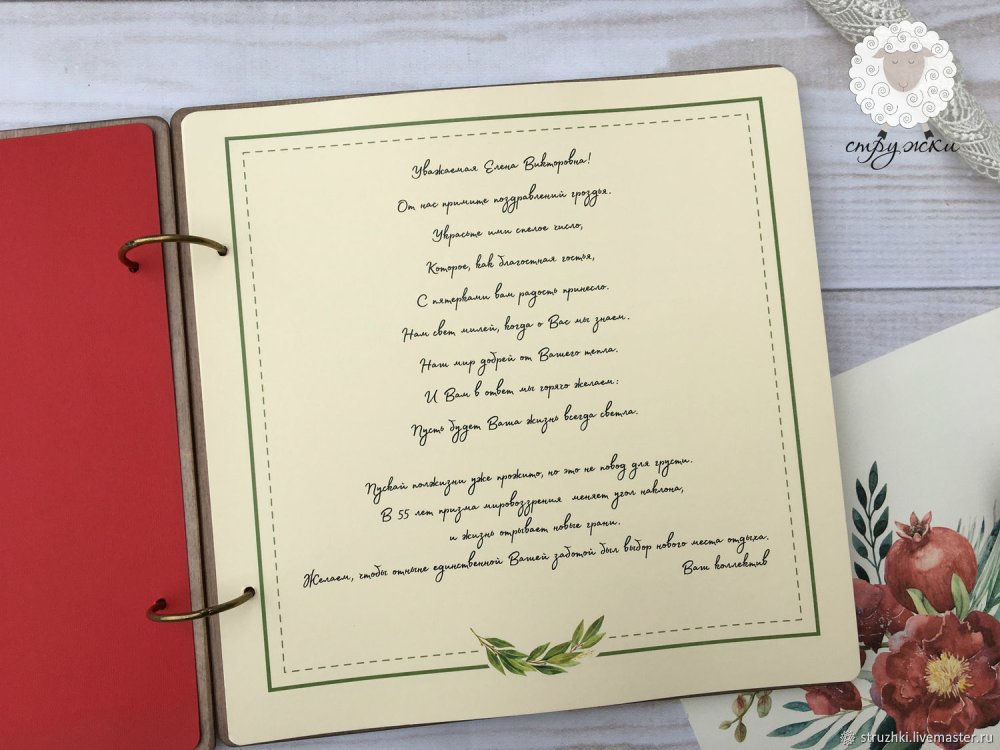 стружки
Уважаемая Елена Викторовна!
От нас примите поздравлений гроздья.
Украсьте ими спелое число,
Которое, как благостная гостья,
С пятерками вам радость принесло.
Нам свет милей, когда о Вас мы знаем.
Наш мир добрей от Вашего тепла.
И Вам в ответ мы горячо желаем:
Пусть будет Ваша жизнь всегда светла.
Пускай полжизни уже прожито, но это не повод для грусти.
В 55 лет призма мировоззрения меняет угол наклона,
и жизнь отрывает новые грани.
Желаем, чтобы отныне единственной Вашей заботой был выбор нового места отдыха.
Ваш коллектив
struzhki.livemaster.ru